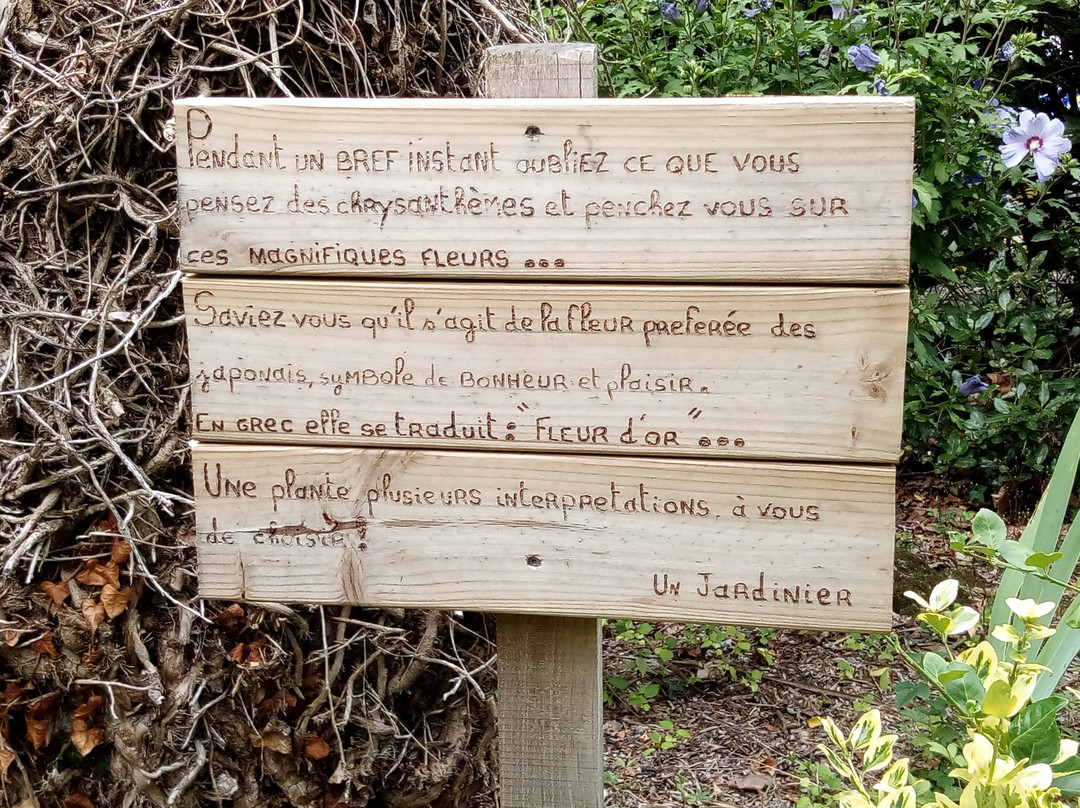 Pendant un BREF instant oubliez CE QUE VOUS
pensez des chrysanthèmes et penchez vous SUR
ces MAGNIFIQUES FLEURS ...
Saviez vous qu'il s'agit de la fleur preferée des
japonais, symbole de BONHEUR et plaisir.
EN GREC elle se traduit : "FLEUR d'OR" ...
Une plante plusieurs interpretations, à vous
de choisir !
UN JARDINIER